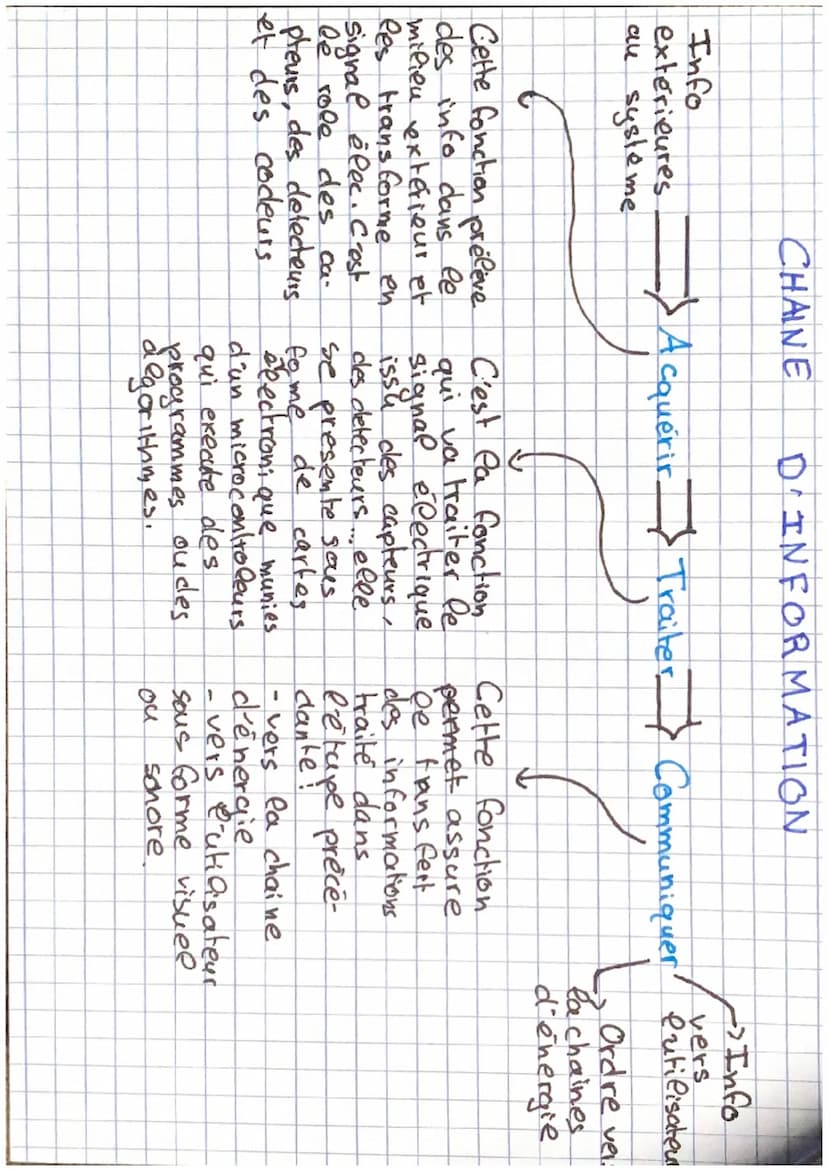 CHAINE D'INFORMATION
Info
extérieures
au système
Acquérir
Traiter
Communiquer
Info
vers
l'utilisateu
Ordre ve
la chaines
d'énergie
Cette fonction prélève
des info dans le
milieu extérieur et
les transforme en
signal élec. C'est
le role des ca-
pteurs, des detecteurs
et des codeurs
C'est la fonction
qui va traiter le
signal électrique
issu des capteurs,
des detecteurs... elle
se presente sous
forme de cartes
électronique munies
d'un microcontrolleurs
qui execute des
programmes ou des
algorithmes.
Cette fonction
permet assure
le transfert
des informations
traité dans
l'étape précé-
dante!
- vers la chaine
d'énergie
- vers l'utilisateur
sous forme visuel
ou sonore.